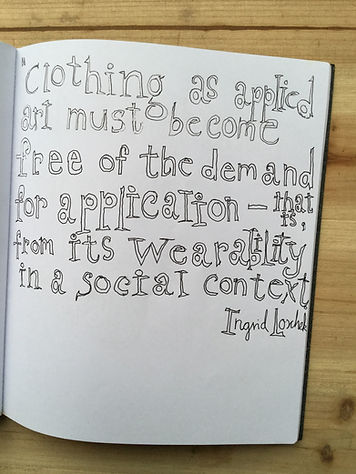 "Clothing as applied
art must become
free of the demand
for application – that
is,
from its Wearability
in a social context
Ingrid Loschek